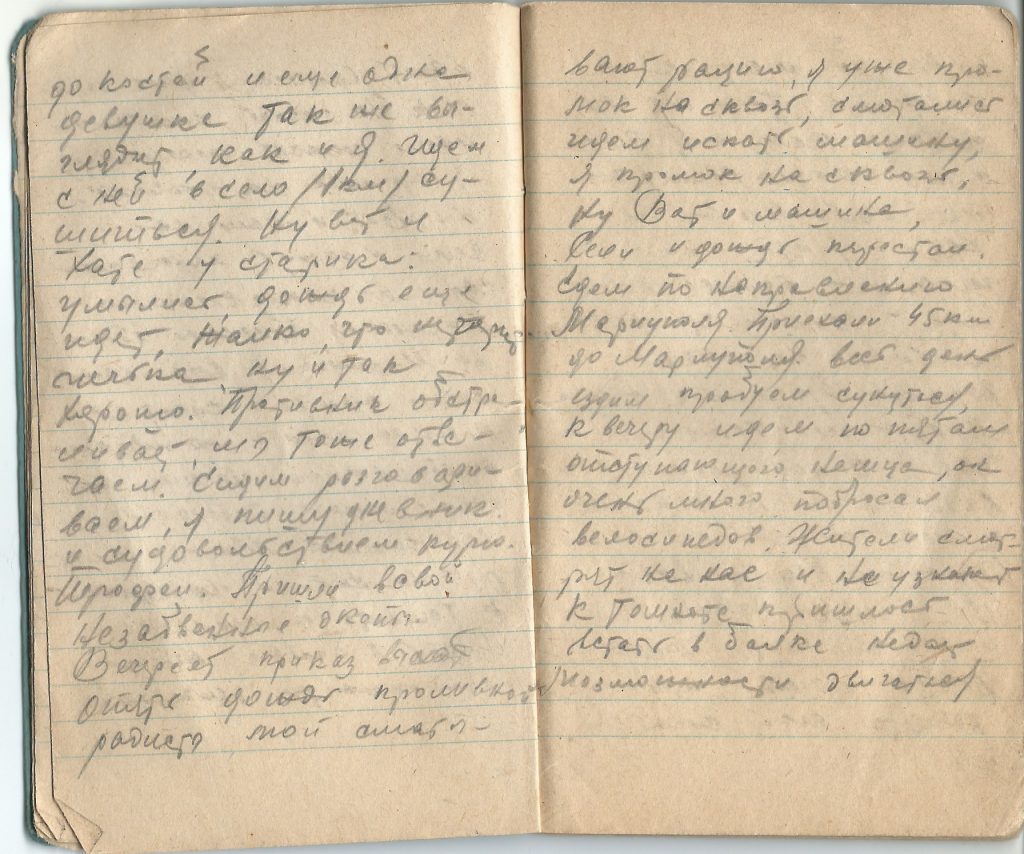 до костей и еще одна
девушка так же вы-
глядит, как и я. Идем
с ней в село /1км/ су-
шиться. Ну вот и
хате у старика.
умылись, дождь еще
идет, жалко, что
ну и так
хорошо. Противник обстре-
ливает, мы тоже отве-
чаем. Сидим розговари-
ваем, я пишу дневник.
и с удовольствием курю.
Пришли в свои
незабвенные окопы.
Вечереет приказ
опять дождь проливной
радисты мои сматы-
вают рацию, я уже про-
мок на сквозь, смотались
идем искать машину,
я промок на сквозь,
ну Вот и машина,
Сели и дождь перестал.
Едем по направлению
Мариуполя. Приехали 45 км
до Мариуполя. весь день
ездим пробуем сунуться,
к вечеру идем по пятам
отступающего немца, он
очень много побросал
велосипедов. Жители смот-
рят на нас и не узнают
к пришлось
встать в балке недав
возможности двигаться